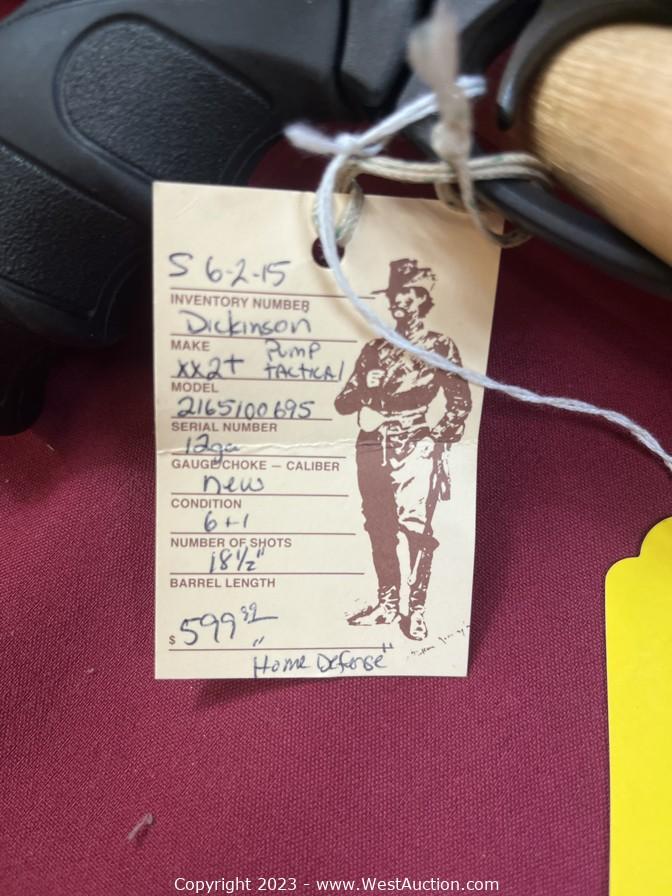 S 6-2-15
INVENTORY NUMBER
Dickinson
MAKE Pump
xx2t TACTICAl
MODEL
2165100695
SERIAL NUMBER
12ga
GAUGE CHOKE — CALIBER
new
CONDITION
6+1
NUMBER OF SHOTS
18½"
BARREL LENGTH
$ 599 99
"Home Defense"
Copyright 2023 - www.WestAuction.com